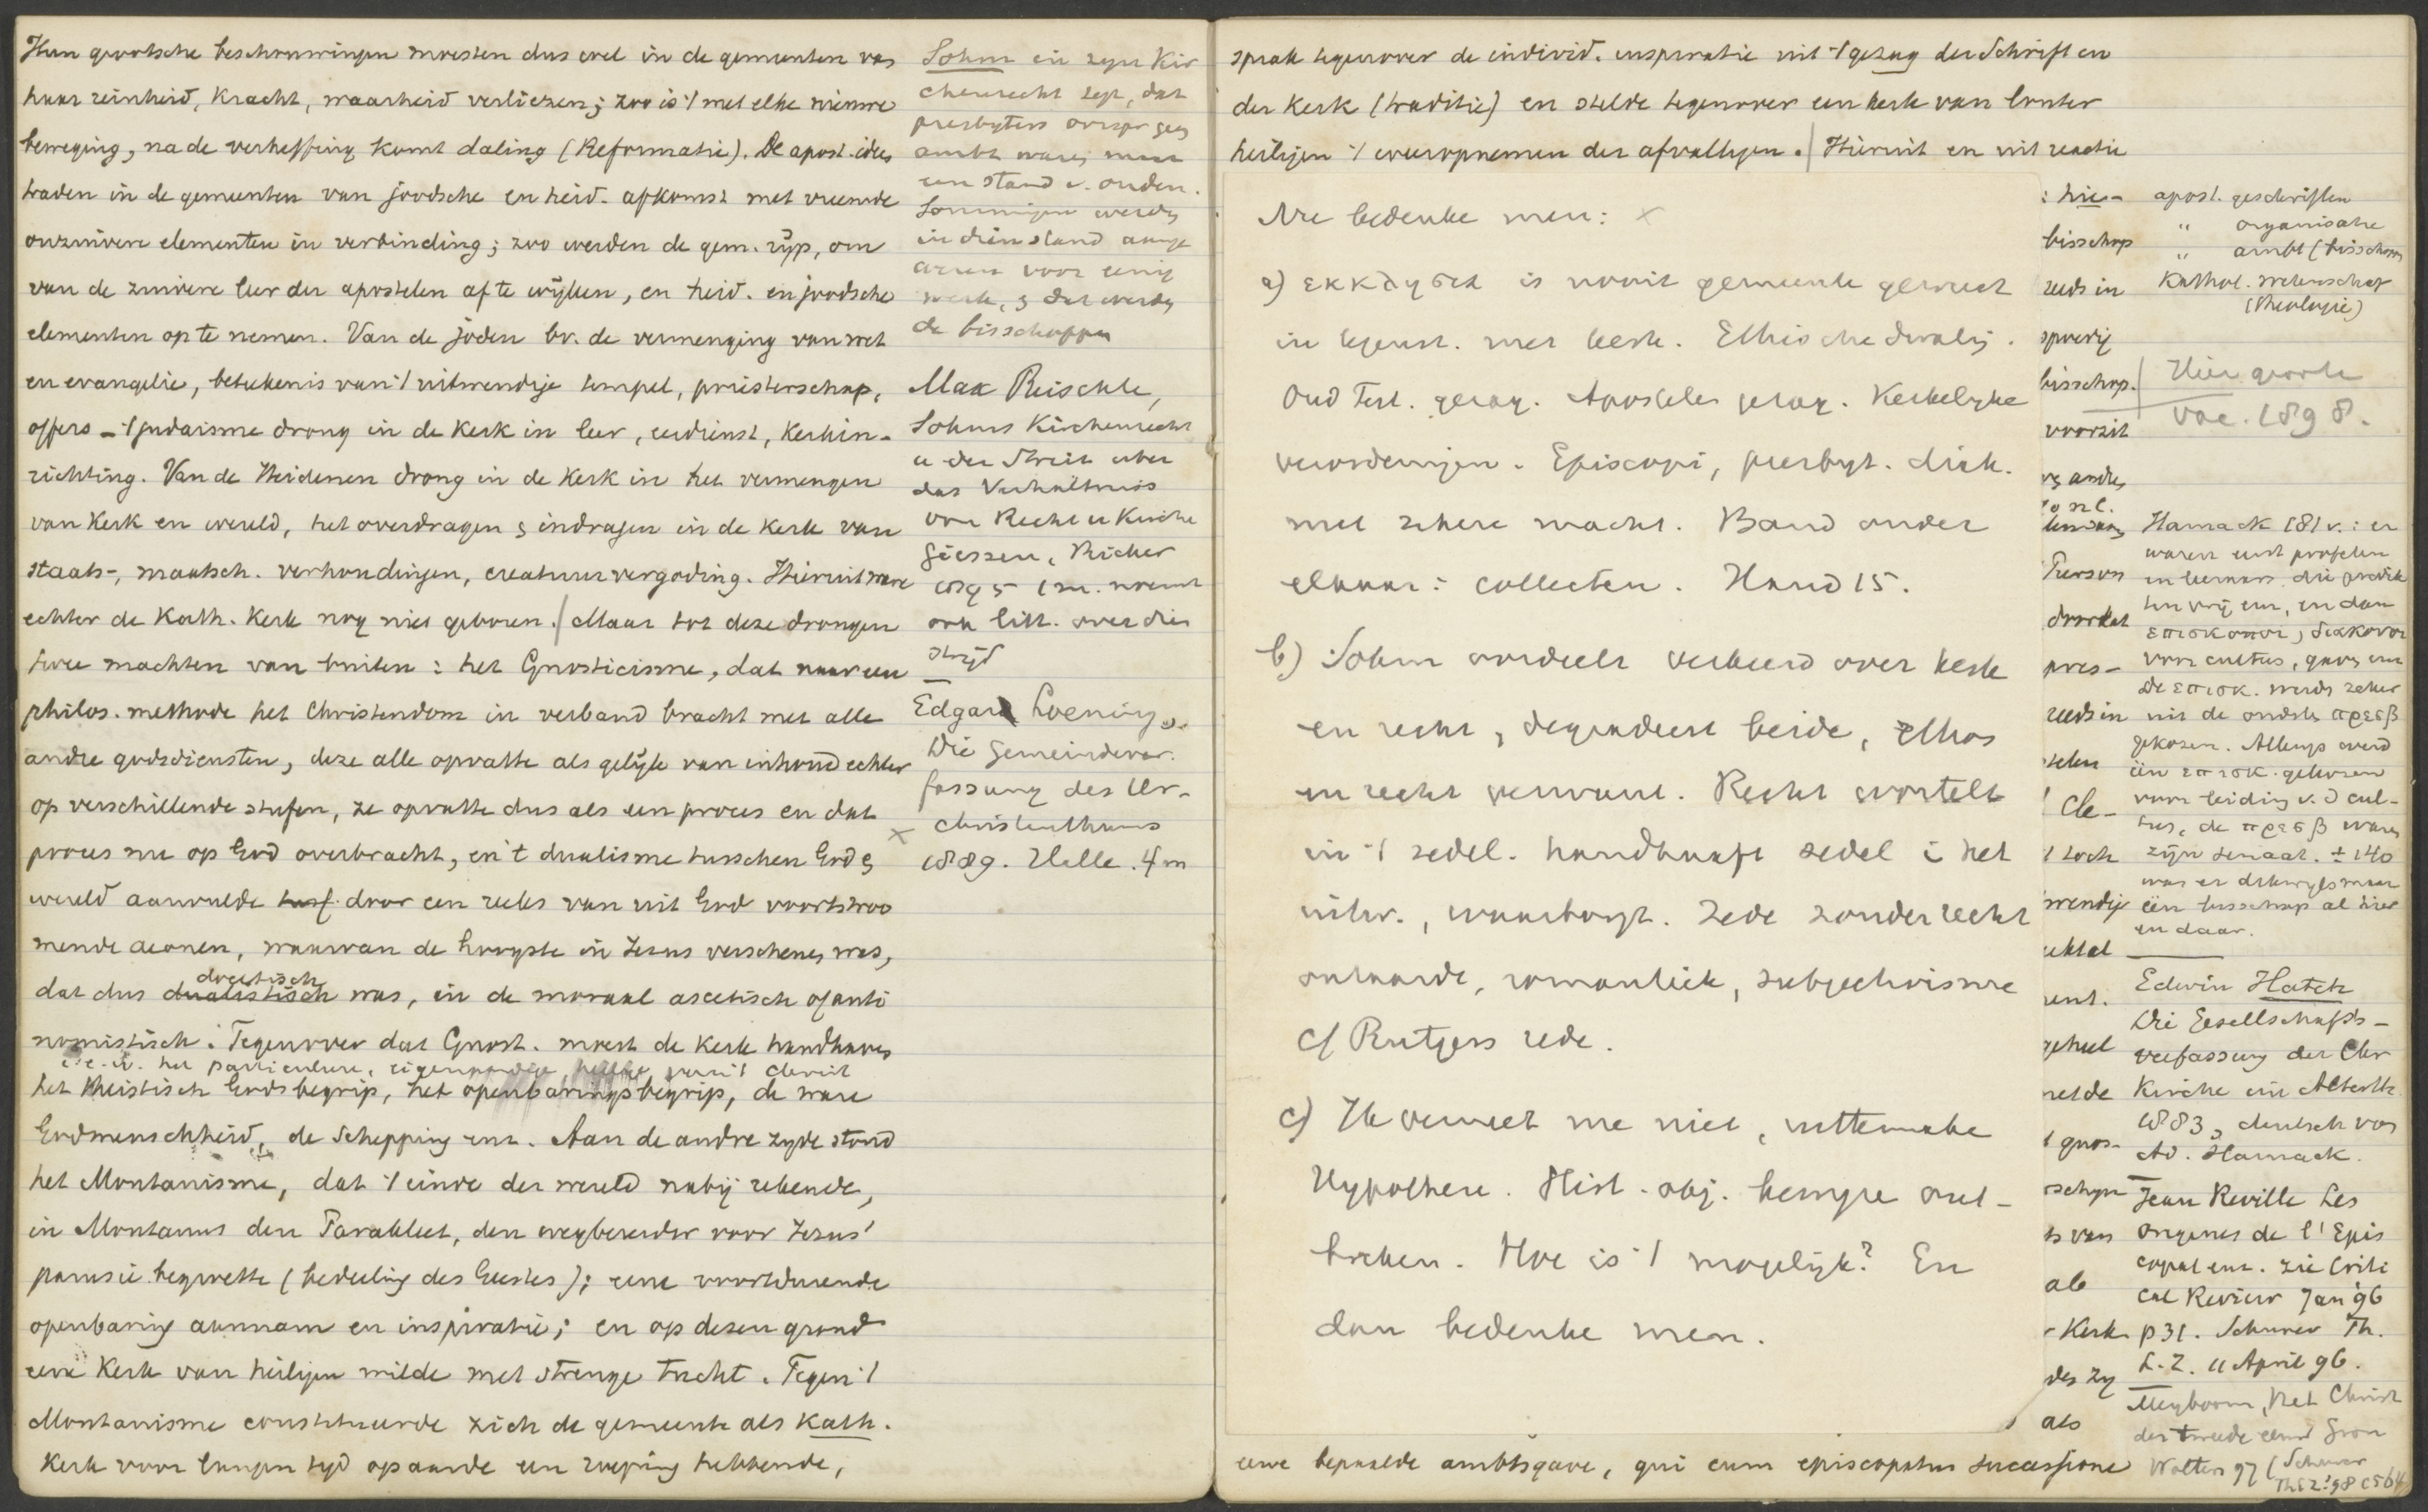 Hun grootsche beschouwingen moesten dus wel in de gemeenten van
haar reinheid, kracht, waarheid verliezen; zoo is 't met elke nieuwe
beweging, na de verheffing komt daling (Reformatie). De apost. idees
traden in de gemeenten van joodsche en heid. afkomst met vreemde
onzuivere elementen in verbinding; zoo werden de gem. rijp, om
van de zuivere leer der apostelen af te wijken, en heid. en joodsche
elementen op te nemen. Van de joden bv. de vermenging van wet
en evangelie, beteekenis van 't uitwendige tempel, priesterschap,
offers – 't judaisme drong in de Kerk in leer, eerdienst, kerkin-
richting. Van de Heidenen drong in de Kerk in het vermengen
van Kerk en wereld, het overdragen & indragen in de Kerk van
staats-, maatsch. verhoudingen, creatuurvergoding. Hieruit ware
echter de Kath. Kerk nog niet geboren. / Maar tot deze drongen
twee machten van buiten: het Gnosticisme, dat naar een
philos. methode het Christendom in verband bracht met alle
andre godsdiensten, deze alle opvatte als gelijk van inhoud echter
op verschillende stufen, ze opvatte dus als een proces en dat
proces nu op God overbracht, en 't dualisme tusschen God &
wereld aanvulde door een reeks van uit God voortstroo
mende aeonen, waarvan de hoogste in Jezus verschenen was,
docetisch
dat dus dualistisch was, in de moraal ascetisch of anti
nomistisch. Tegenover dat Gnost. moest de Kerk handhaven
het particuliere, eigenaardige van 't Christ
het theistisch Godsbegrip, het openbaringsbegrip, de ware
Godmenschheid, de Schepping enz. Aan de andre zijde stond
het Montanisme, dat 't einde der wereld nabij rekende,
in Montanus den Parakleet, den wegbereider voor Jezus'
parusie begroette (bedeeling des Geestes); eene voortdurende
openbaring aannam en inspiratie; en op dezen grond
eene Kerk van heiligen wilde met strenge tucht. Tegen 't
Montanisme constitueerde zich de gemeente als Kath.
Kerk voor langen tijd op aarde een roeping hebbende,
Sohm in zijn Kir
chenrecht zegt, dat
presbyters oorspr geen
ambt waren maar
een stand v. ouden.
Sommigen werden
in dien stand aange
wezen voor eenig
werk, & dat werden
de bisschoppen
Max Reischle,
Sohms Kirchenrecht
u der Streit über
das Verhältniss
von Recht u Kirche
Giessen, Ricker
1895 1 m. noemt
ook litt. over dien
strijd
Edgar Loening,
Die Gemeindever-
fassung des Ur-
x christenthums
1889. Halle. 4 m
sprak tegenover de individ. inspiratie uit 't gezag der Schrift en
der Kerk (traditie) en stelde tegenover een kerk van louter
heiligen 't weeropnemen der afvalligen. / Hieruit en uit reactie
Nu bedenke men: x
a) εκκλησια is nooit gemeente geweest
in tegenst. met kerk. Ethische dwaling.
Oud Test. gezag. Apostelen gezag. Kerkelijke
verordeningen. Episcopi, presbyt. diak.
met zekere macht. Band onder
elkaar: collecten. Hand 15.
b) Sohm oordeelt verkeerd over kerk
en recht, degradeert beide, ethos
en recht verwant. Recht wortelt
in 't zedel. handhaaft zedel i het
uitw., waarborgt. Zede zonder recht
ontaarde, romantiek, subjectivisme
c/ Rutgers rede.
c) Ik verwerp me niet,
Hypothese. Hist. obj. bewijze ont-
breken. Hoe is 't mogelijk? En
dan bedenke men.
eene bepaalde ambtsgave, qui cum episcopatus successione
: hie-
bisschop
reeds in
spoedig
bisschop.
voorzit
Pierson
doordat
pres-
reeds in
Cle-
't toch
wendige
geheel
't gnos-
schijn
ts van
als
- Kerk
des zij
als
apost. geschriften
" organisatie
" ambt (bisschop)
Kathol. wetenschap
(theologie)
Hier groote
vac. 1898.
Harnack 181 v.: er
waren eerst profeten
en leeraars die predik
ten vrij enz, en dan
επισκοποι, διακονοι
voor cultus, gaven enz
De επισκ. werden zeker
uit de oudste πρεσβ
gekozen. Allengs werd
één επισκ. gekozen
voor leiding v. d cul-
tus, de πρεσβ waren
zijn senaat. ± 140
was er dikwijls maar
één bisschop al hier
en daar.
Edwin Hatch
Die Gesellschafts-
verfassung der Chr
Kirche im Alterth.
1883, deutsch von
Ad. Harnack.
Jean Reville Les
origines de l'Epis
copat enz. zie Criti
cal Review Jan 96
p 31. Schurer Th.
L. Z. 11 April 96.
Meyboom, Het Christ
der tweede eeuw Gron
Wolters 97 (Schurer
ThLZ '98 c 564